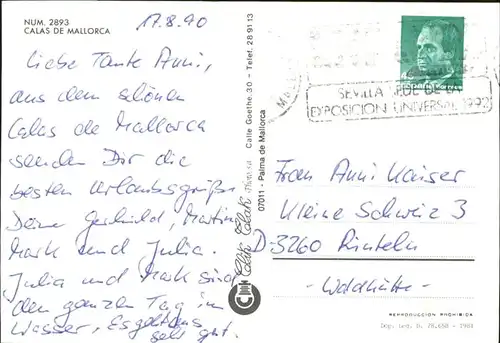 NUM. 2893
CALAS DE MALLORCA
17.8.90
Liebe Tante Anni,
aus dem schönen
Calas de Mallorca
senden Dir die
besten Urlaubsgrüße
Deine Gerhild, Martin
Mark und Julia.
Julia und Mark sind
den ganzen Tag im
Wasser, Es gefällt uns
sehr gut.
Click Clack
07011 - Palma de Mallorca
Calle Goethe. 30 - Telef. 28 91 13
Correos
SEVILLA SEDE DE LA
EXPOSICION UNIVERSAL 1992
Frau Anni Kaiser
Kleine Schweiz 3
D-3260 Rinteln
- Waldhütte -
REPRODUCCION PROHIBIDA
Dep. Leg. B. 28.658 - 1983